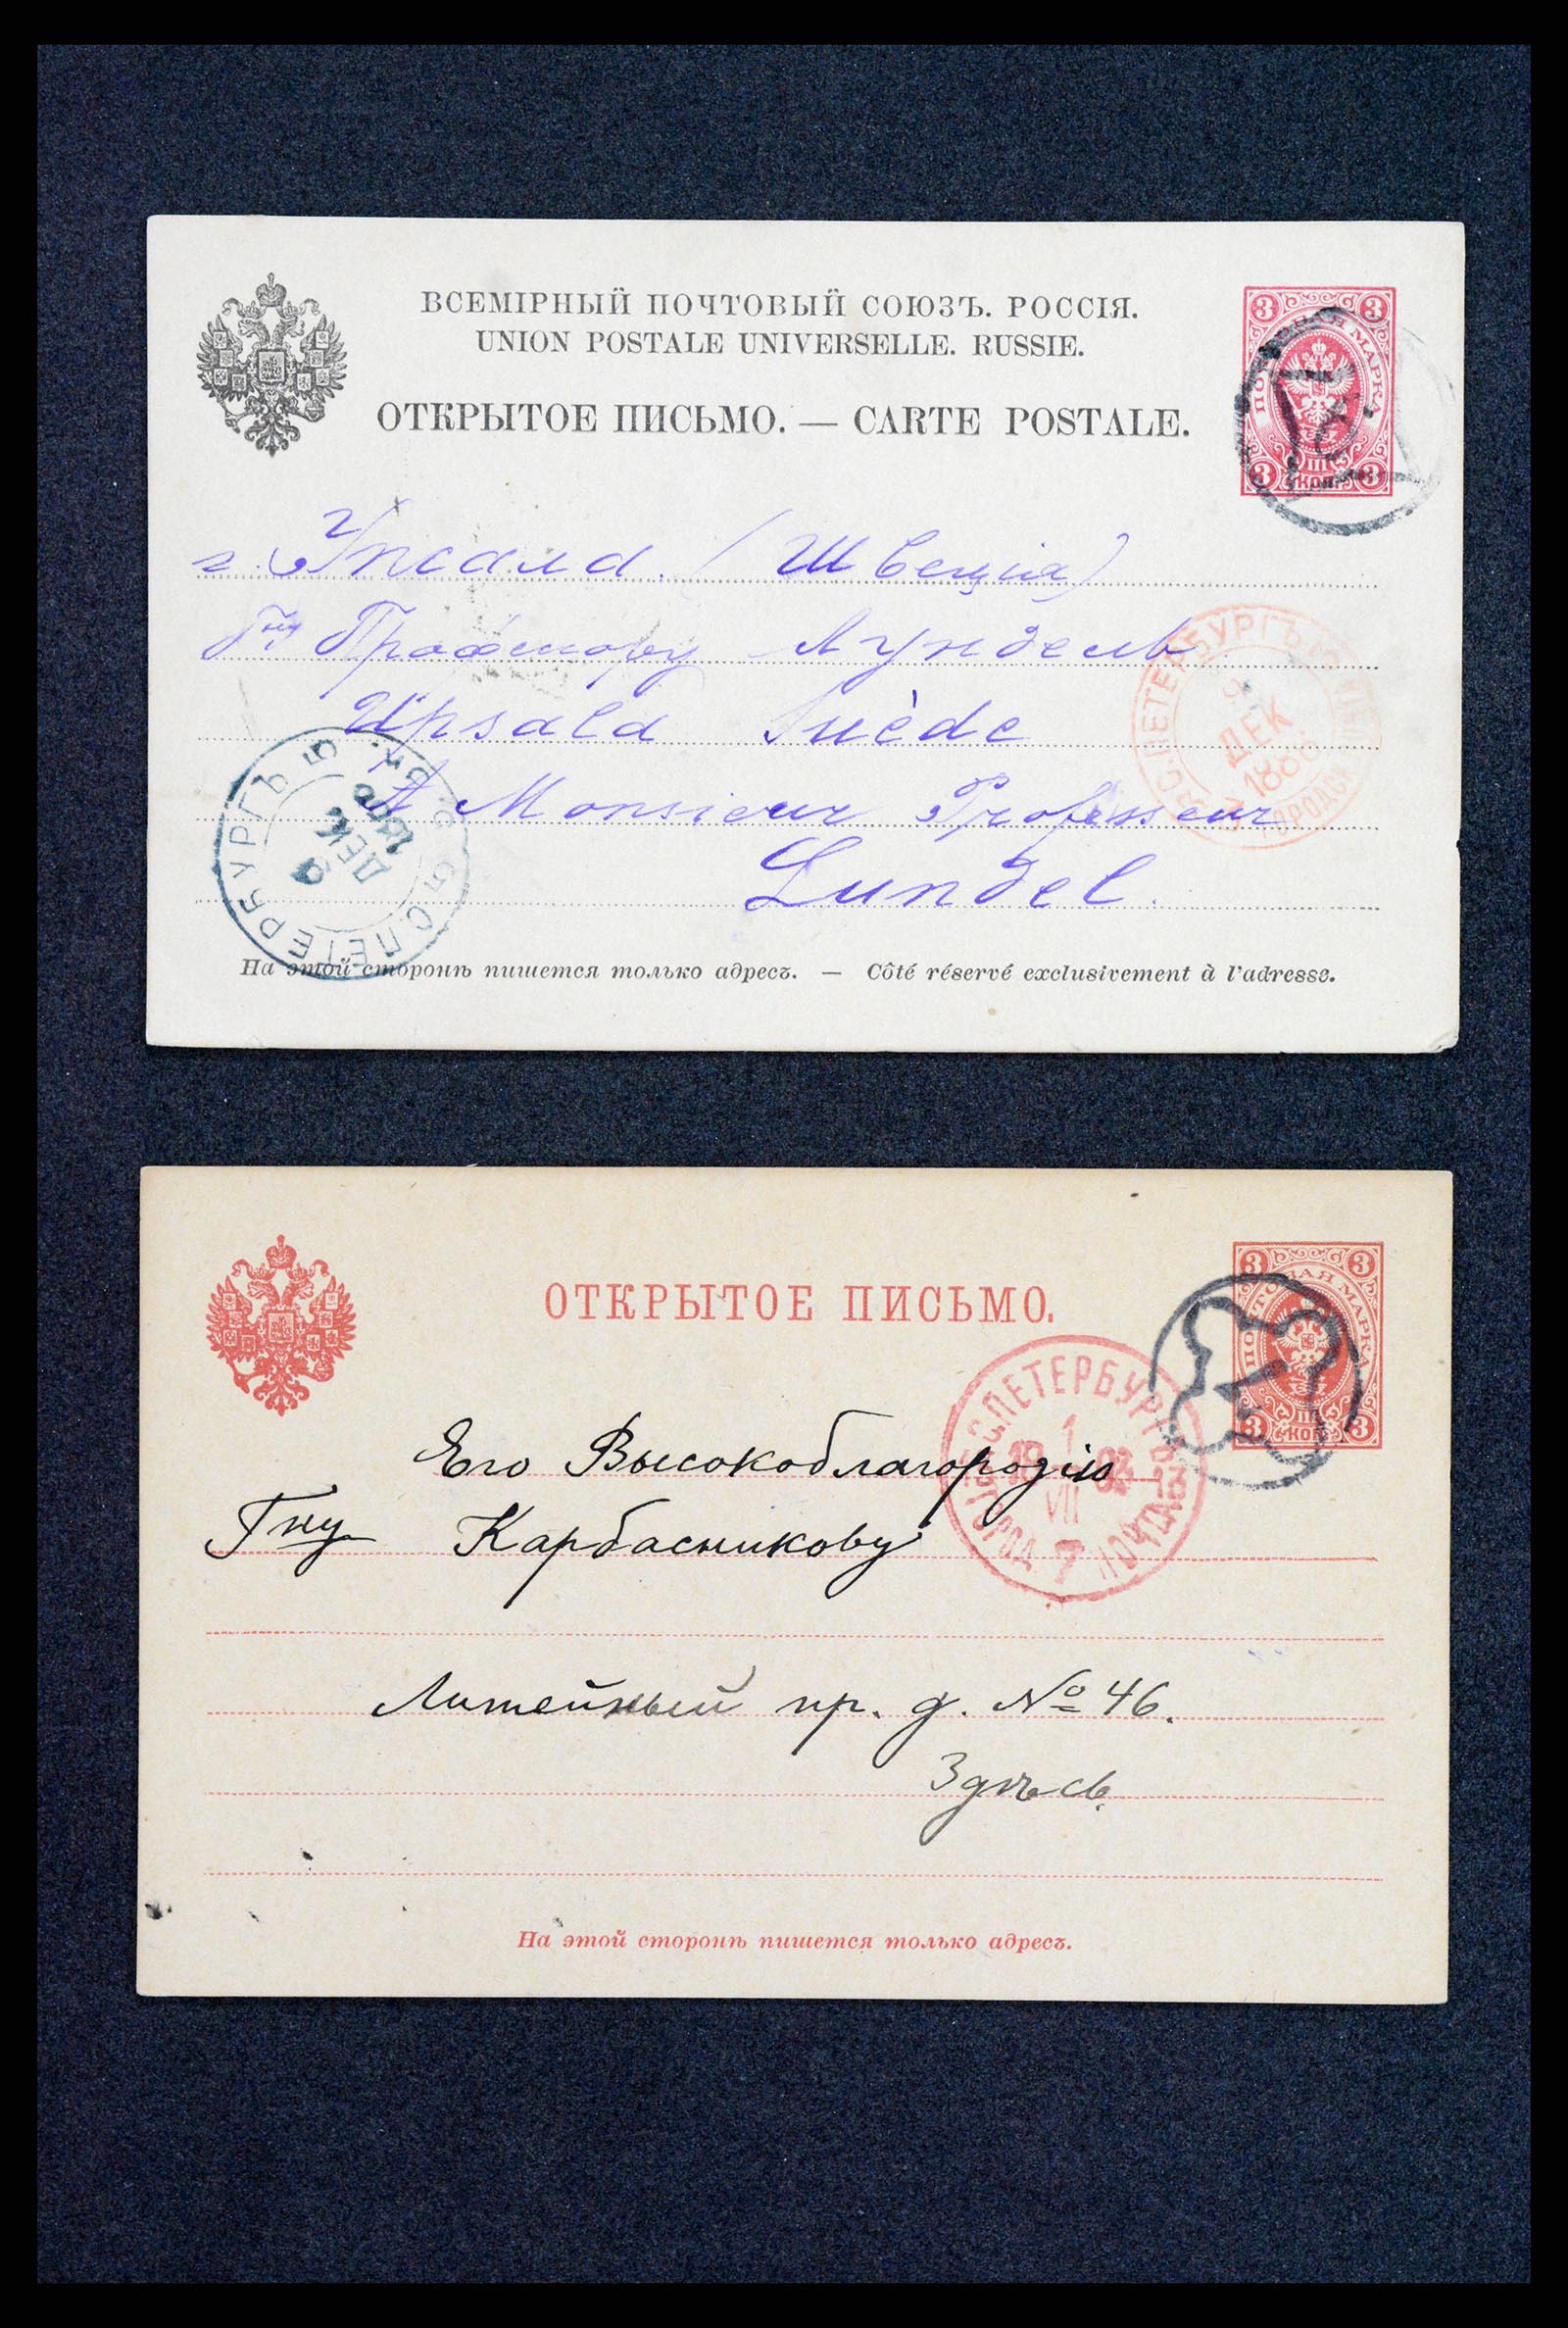 ВСЕМІРНЫЙ ПОЧТОВЫЙ СОЮЗЪ. РОССІЯ.
UNION POSTALE UNIVERSELLE. RUSSIE.
ОТКРЫТОЕ ПИСЬМО. — CARTE POSTALE.
3 3
ПОЧТОВАЯ МАРКА
III
3 КОП. 3
г. Упсала. (Швеція)
Гну Професору Лундель
Upsala Suède
A Monsieur Professeur
Lundel.
С.ПЕТЕРБУРГЪ
ДЕК
188
ГОРОДС
С.ПЕТЕРБУРГЪ
ДЕК
На этой сторонѣ пишется только адресъ. — Côté réservé exclusivement à l'adresse.
ОТКРЫТОЕ ПИСЬМО.
3 3
ПОЧТОВАЯ МАРКА
III
3 КОП. 3
С.ПЕТЕРБУРГЪ
1
VII
ГОРОД. 7 ПОЧТА
Его Высокоблагородію
Гну Карбасникову
Литейный пр. д. № 46.
Здѣсь.
На этой сторонѣ пишется только адресъ.